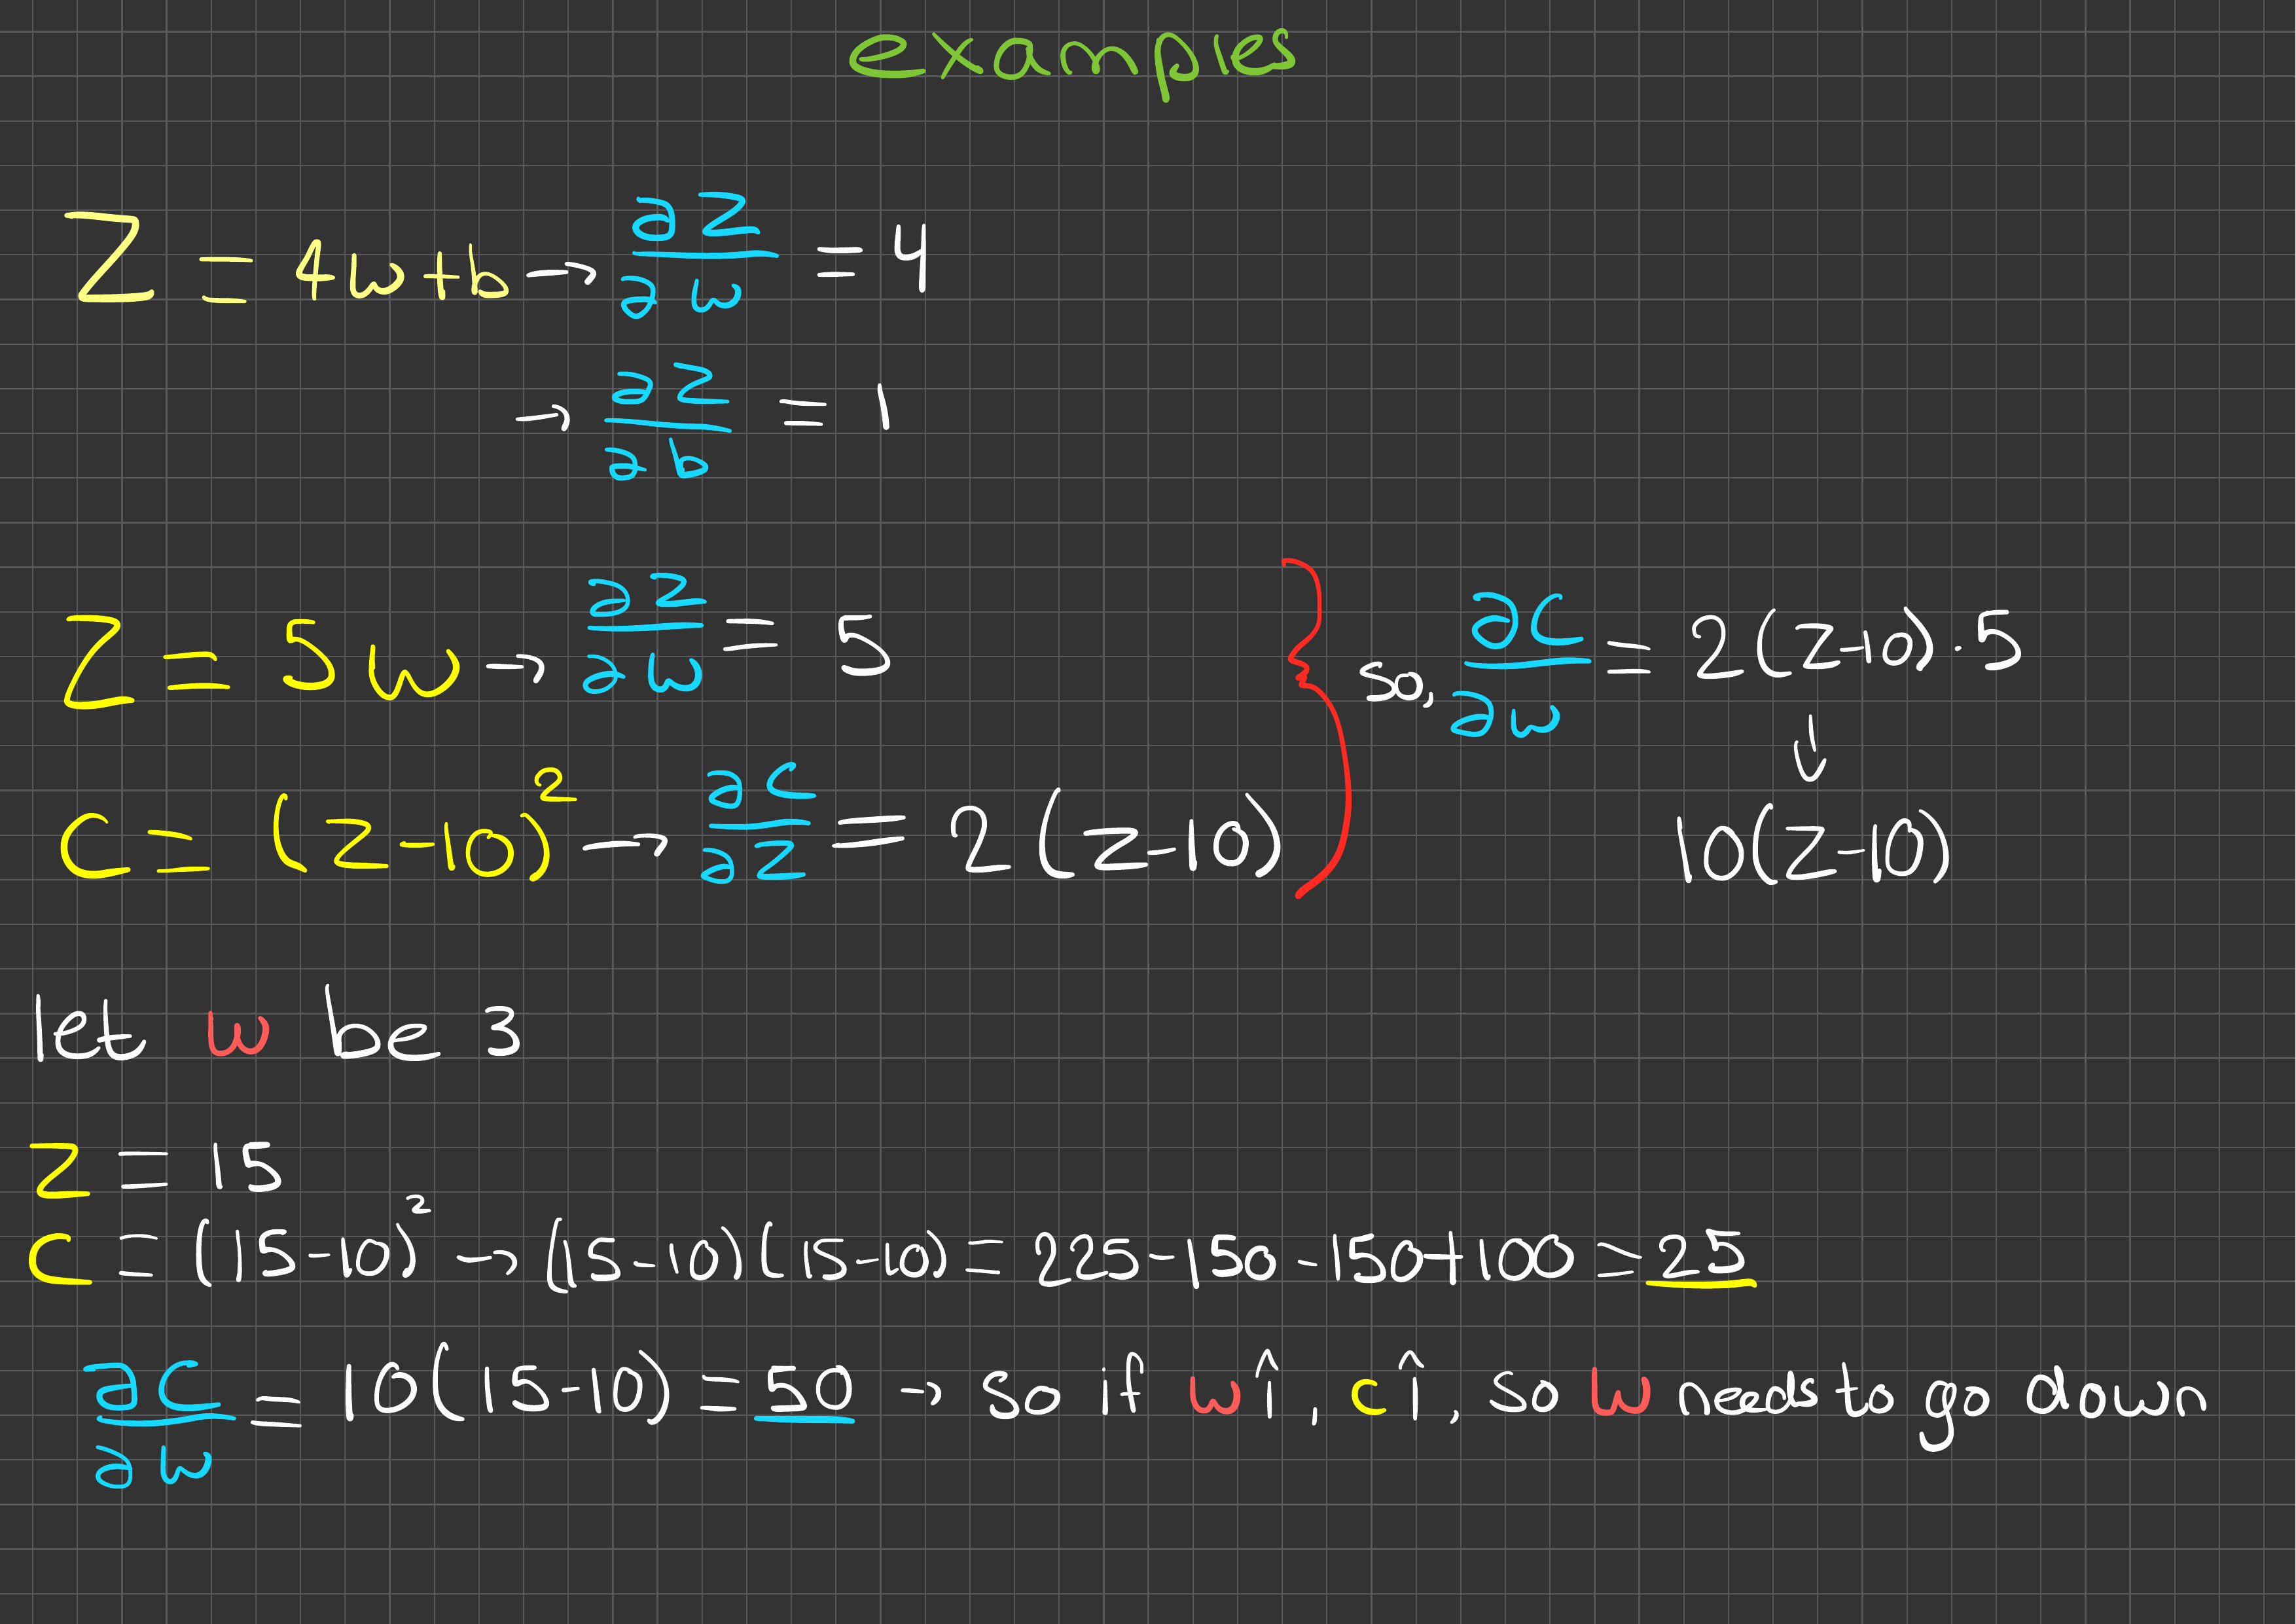 examples
Z = 4w+b → ∂Z/∂w = 4
→ ∂Z/∂b = 1
Z = 5w → ∂Z/∂w = 5
C = (Z-10)² → ∂C/∂Z = 2(Z-10)
so, ∂C/∂w = 2(Z-10)·5
↓
10(Z-10)
let w be 3
Z = 15
C = (15-10)² → (15-10)(15-10) = 225-150-150+100 = 25
∂C/∂w = 10(15-10) = 50 → so if w↑, C↑, so w needs to go down